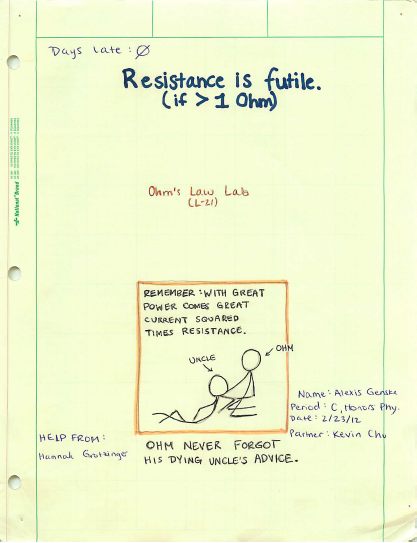 Days Late: Ø
Resistance is futile.
(if > 1 Ohm)
Ohm's Law Lab
(L-21)
REMEMBER: WITH GREAT
POWER COMES GREAT
CURRENT SQUARED
TIMES RESISTANCE.
OHM
UNCLE
Name: Alexis Genske
Period: C, Honors Phy.
Date: 2/23/12
Partner: Kevin Chu
HELP FROM:
Hannah Grotzinger
OHM NEVER FORGOT
HIS DYING UNCLE'S ADVICE.
National Brand